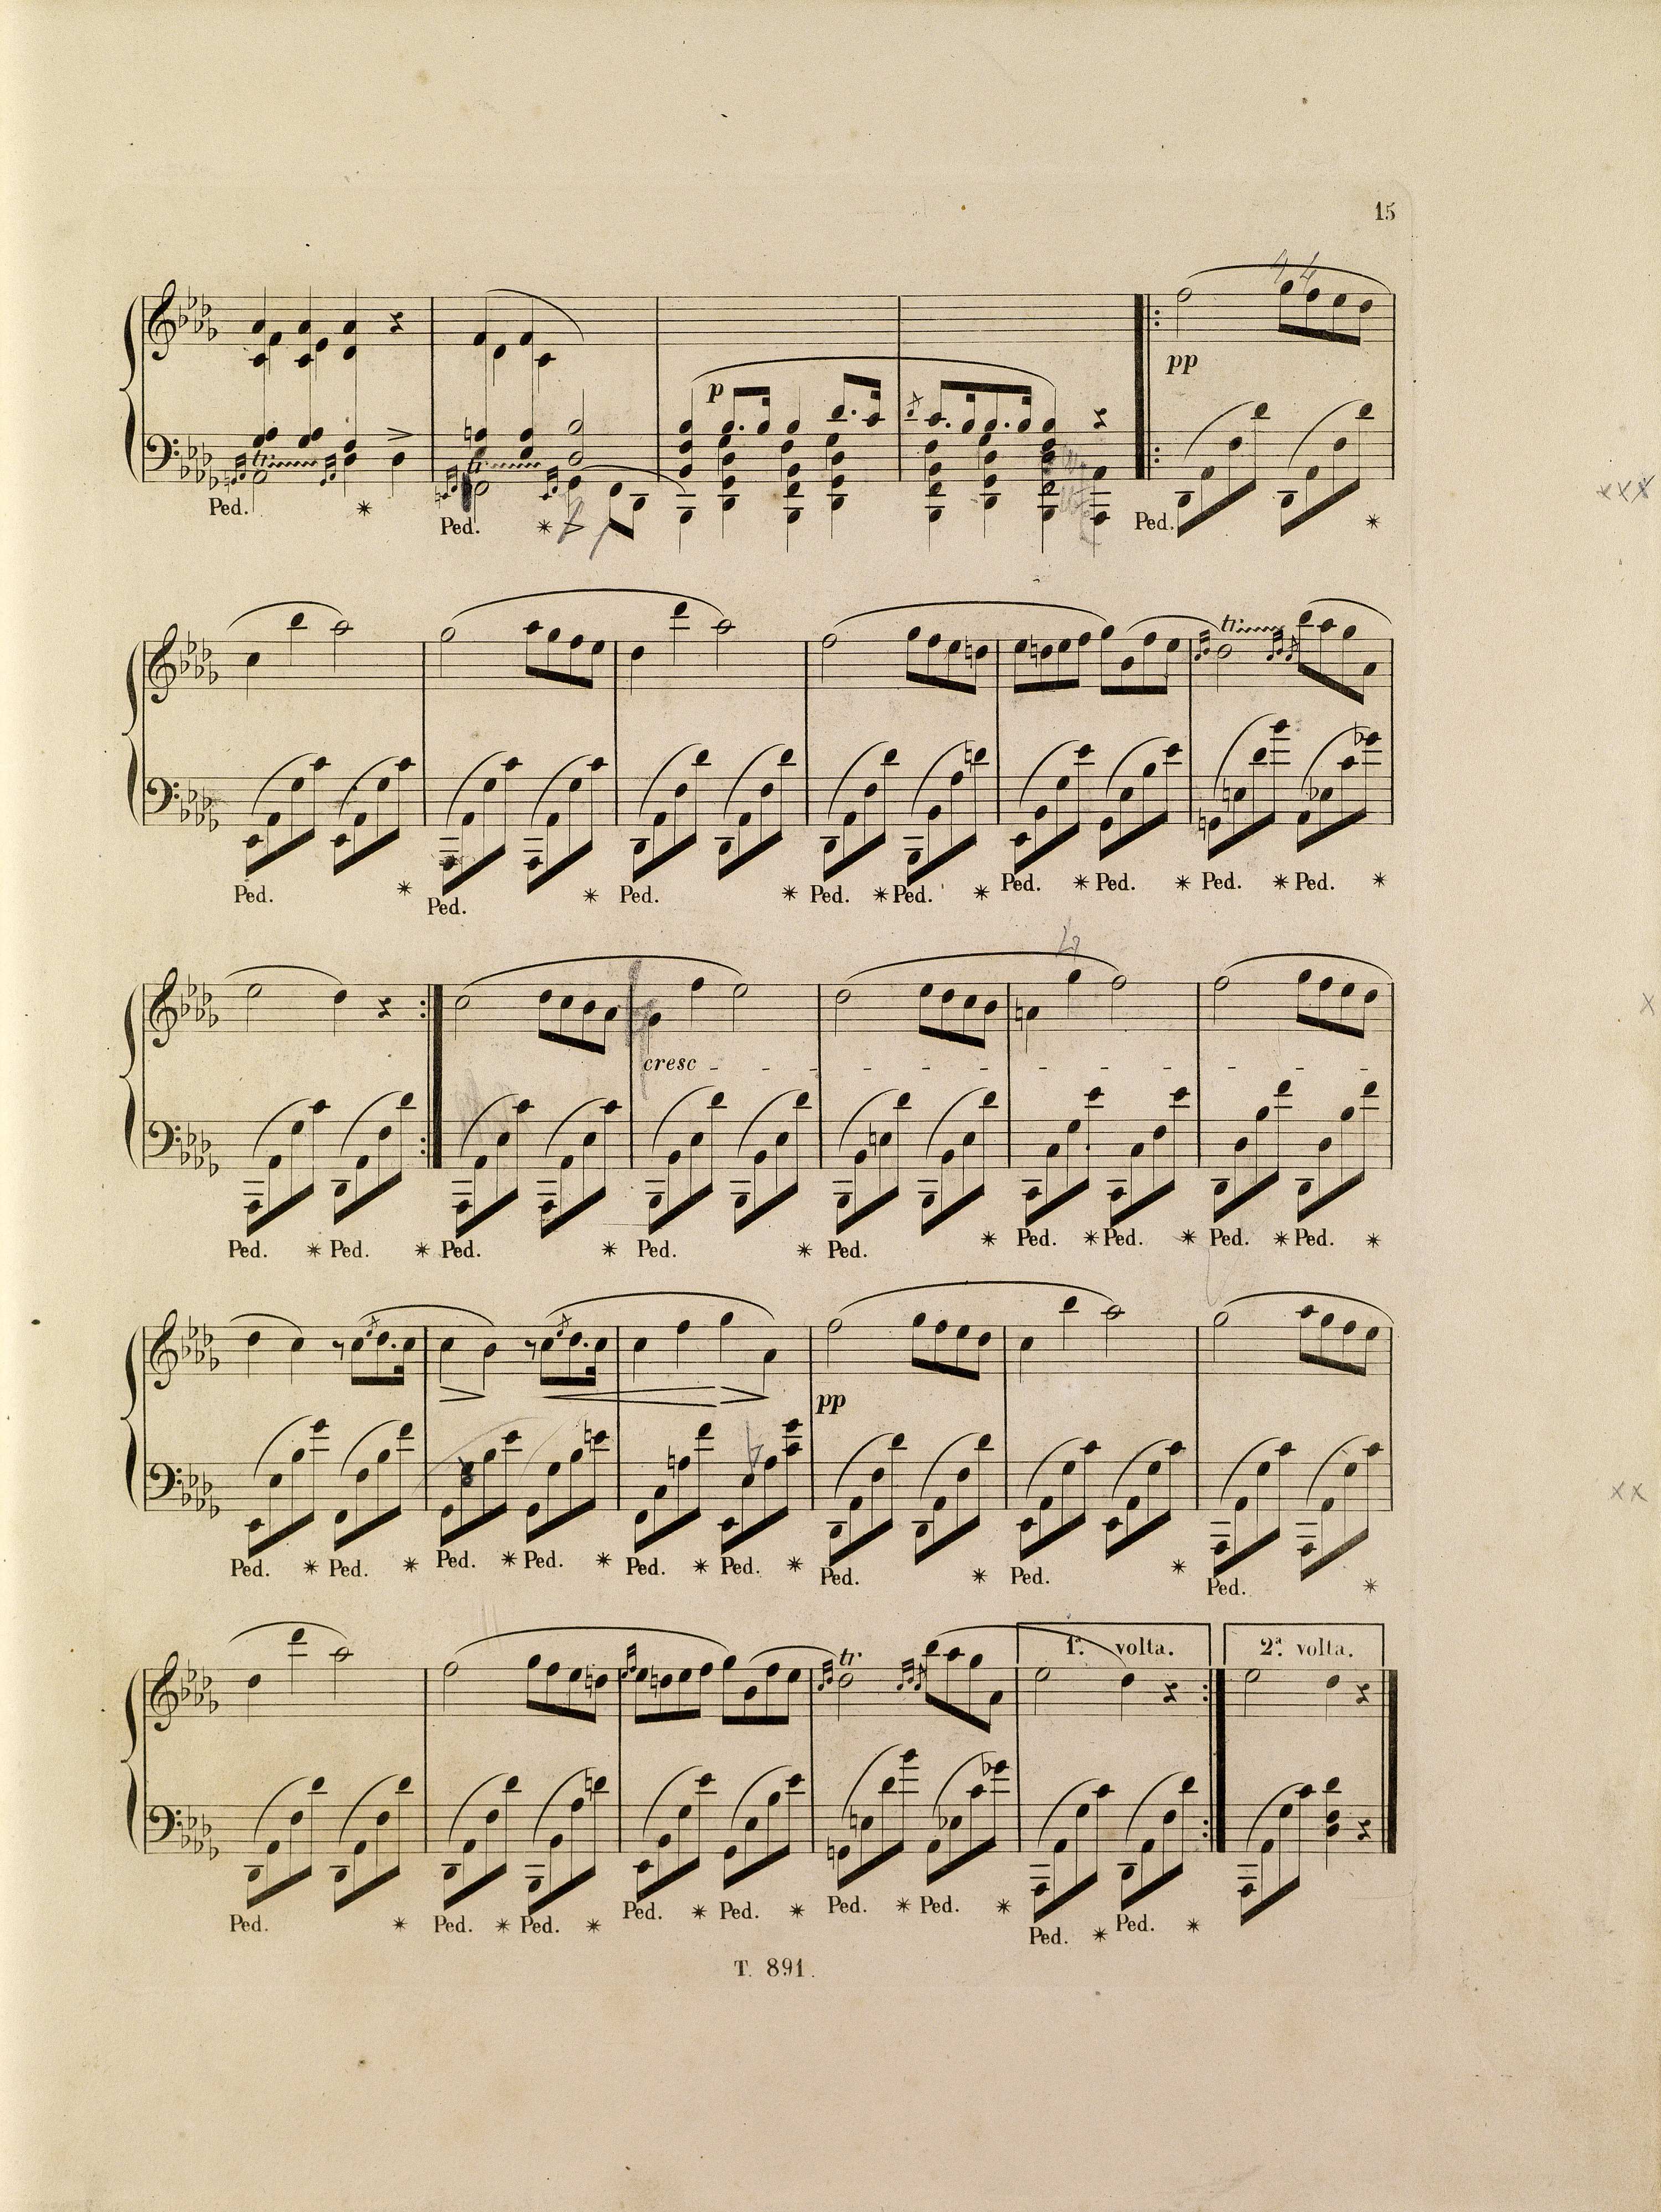 15
tr
Ped. *
tr
Ped. *
p
pp
Ped. *
4 4
xxx
tr
Ped. * Ped. * Ped. * Ped. * Ped. * Ped. * Ped. * Ped. * Ped. *
cresc
x
Ped. * Ped. * Ped. * Ped. * Ped. * Ped. * Ped. * Ped. * Ped. *
pp
xx
Ped. * Ped. * Ped. * Ped. * Ped. * Ped. * Ped. * Ped. * Ped. *
tr. 1ª. volta. 2ª. volta.
Ped. * Ped. * Ped. * Ped. * Ped. * Ped. * Ped. * Ped. * Ped. *
T. 891.